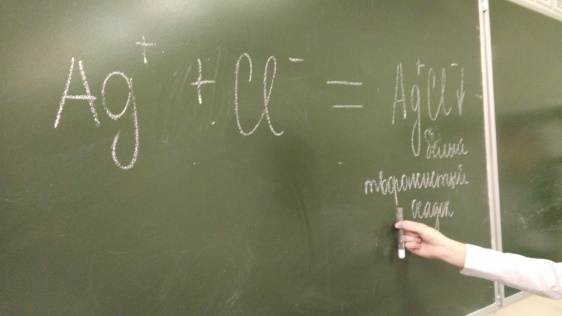 Ag⁺ + Cl⁻ = Ag⁺Cl↓
белый
творожистый
осадк